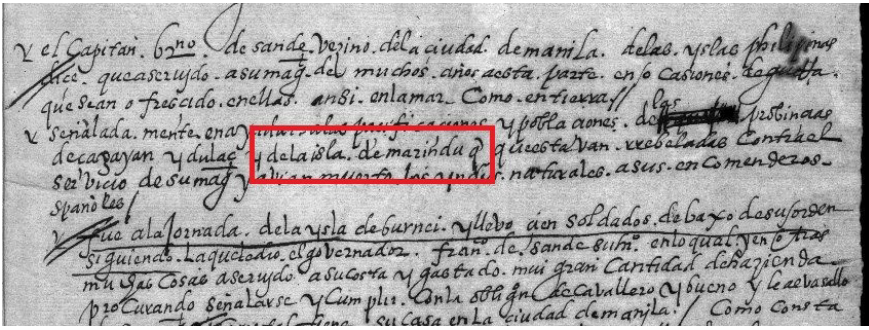 y el Capitan. brno. de sande. vezino. dela ciudad. demanila. delas. yslas philipinas
dice. queaseruydo. asumagd. de muchos. años aesta. parte. en ocasiones. deguerra.
quesean ofrescido. enellas. ansi. enlamar. Como. entierra//
las
y señalada. mente. pacificaciones y poblaciones. de probincias
decagayan y dulac y dela isla. de marinduq questavan. rrebeladas Contrael
seruicio desumagd y avian muerto los yndios. naturales. asus. encomenderos.
spañoles/
y fue alaJornada. dela ysla deburnei. y llevo cien soldados. debaxo desuforden
siguiendo. elgovernador. franco. de. sande suhro. enloqual. y en otras
muchas cosas aseruydo asucosta y gastado. mui gran Cantidad dehazienda
procurando señalarse y cumplir. Conla obligon de cavallero y bueno y leal vasallo
su casa en la ciudad demanila. / Como consta